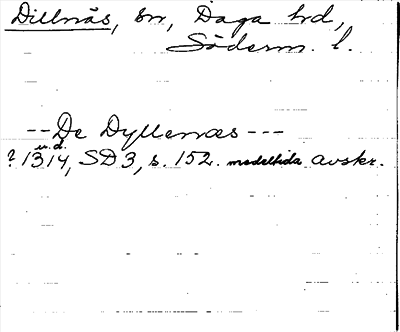 Dillnäs, sn, Daga hd,
Söderm. l.
-- De Dyllenæs ---
u.d.
? 1314, SD 3, s. 152. medeltida avskr.